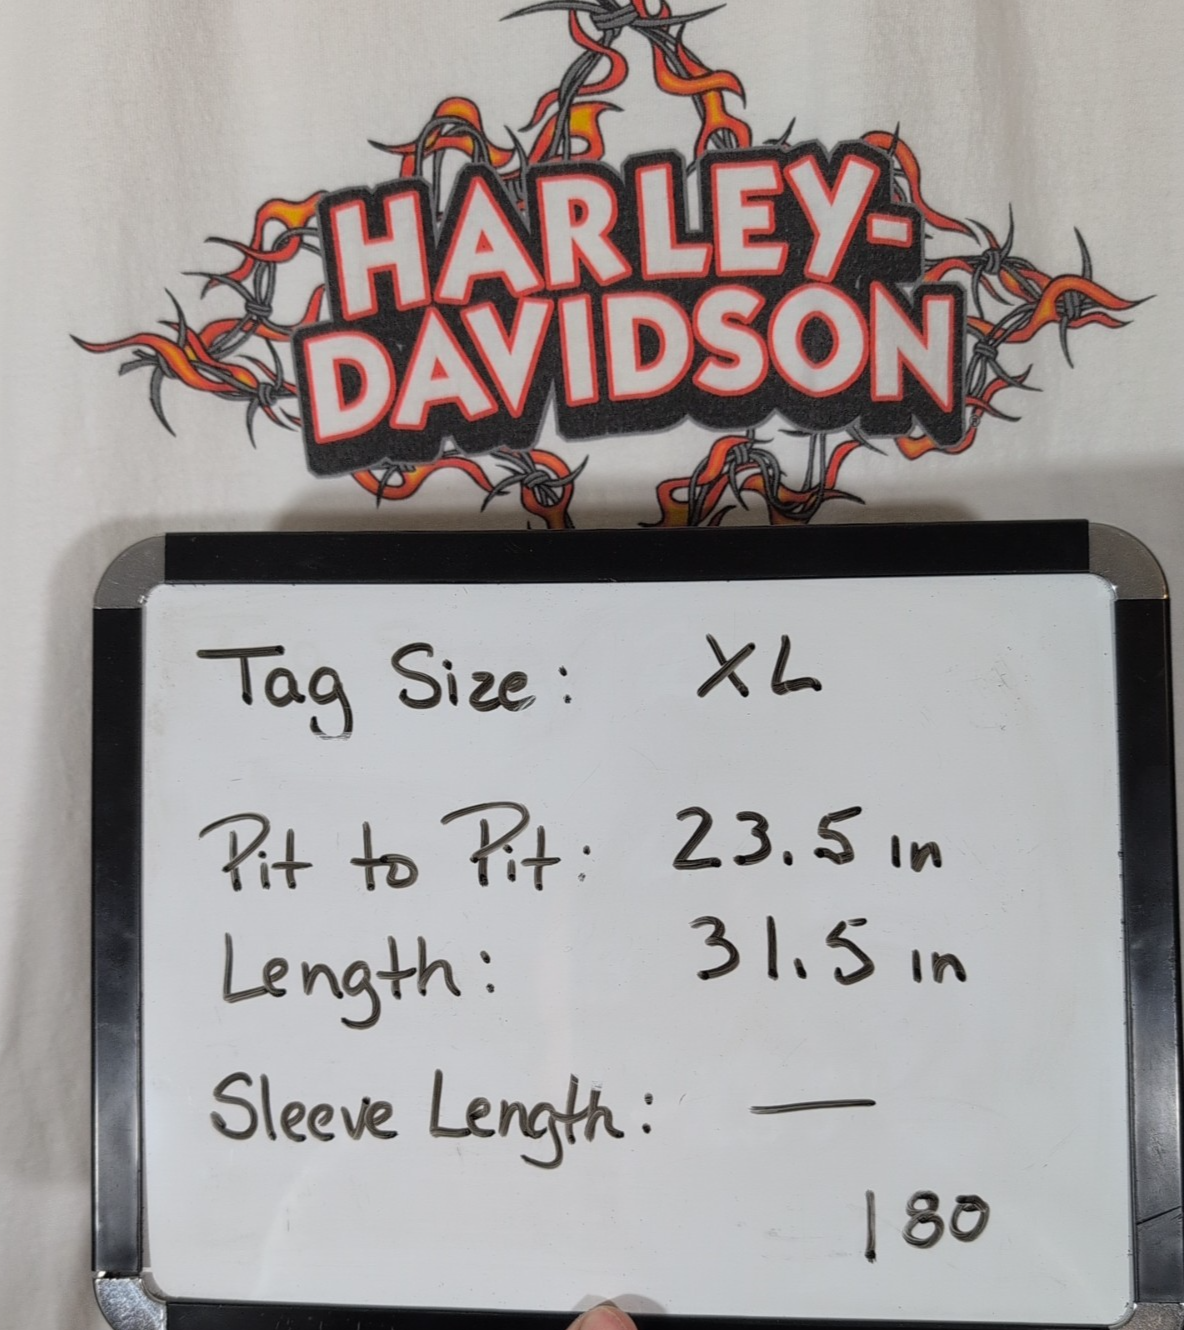 HARLEY-
DAVIDSON
Tag Size: XL
Pit to Pit: 23.5 in
Length: 31.5 in
Sleeve Length: —
180